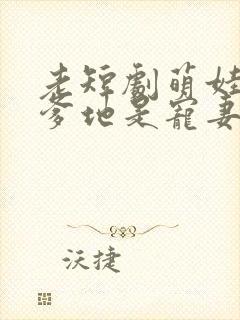 老短劇萌娃
爹地是寵妻
沃捷